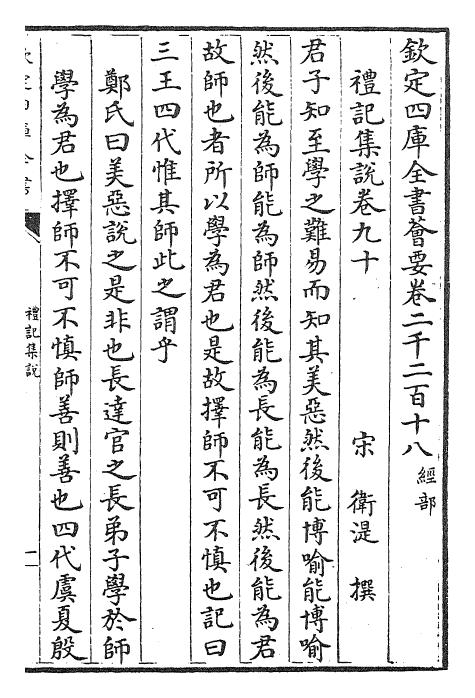 欽定四庫全書薈要卷二千二百十八經部
禮記集說卷九十
宋 衛湜 撰
君子知至學之難易而知其美惡然後能博喻能博喻
然後能為師能為師然後能為長能為長然後能為君
故師也者所以學為君也是故擇師不可不慎也記曰
三王四代惟其師此之謂乎
鄭氏曰美惡說之是非也長達官之長弟子學於師
學為君也擇師不可不慎師善則善也四代虞夏殷
欽定四庫全書
禮記集說
一